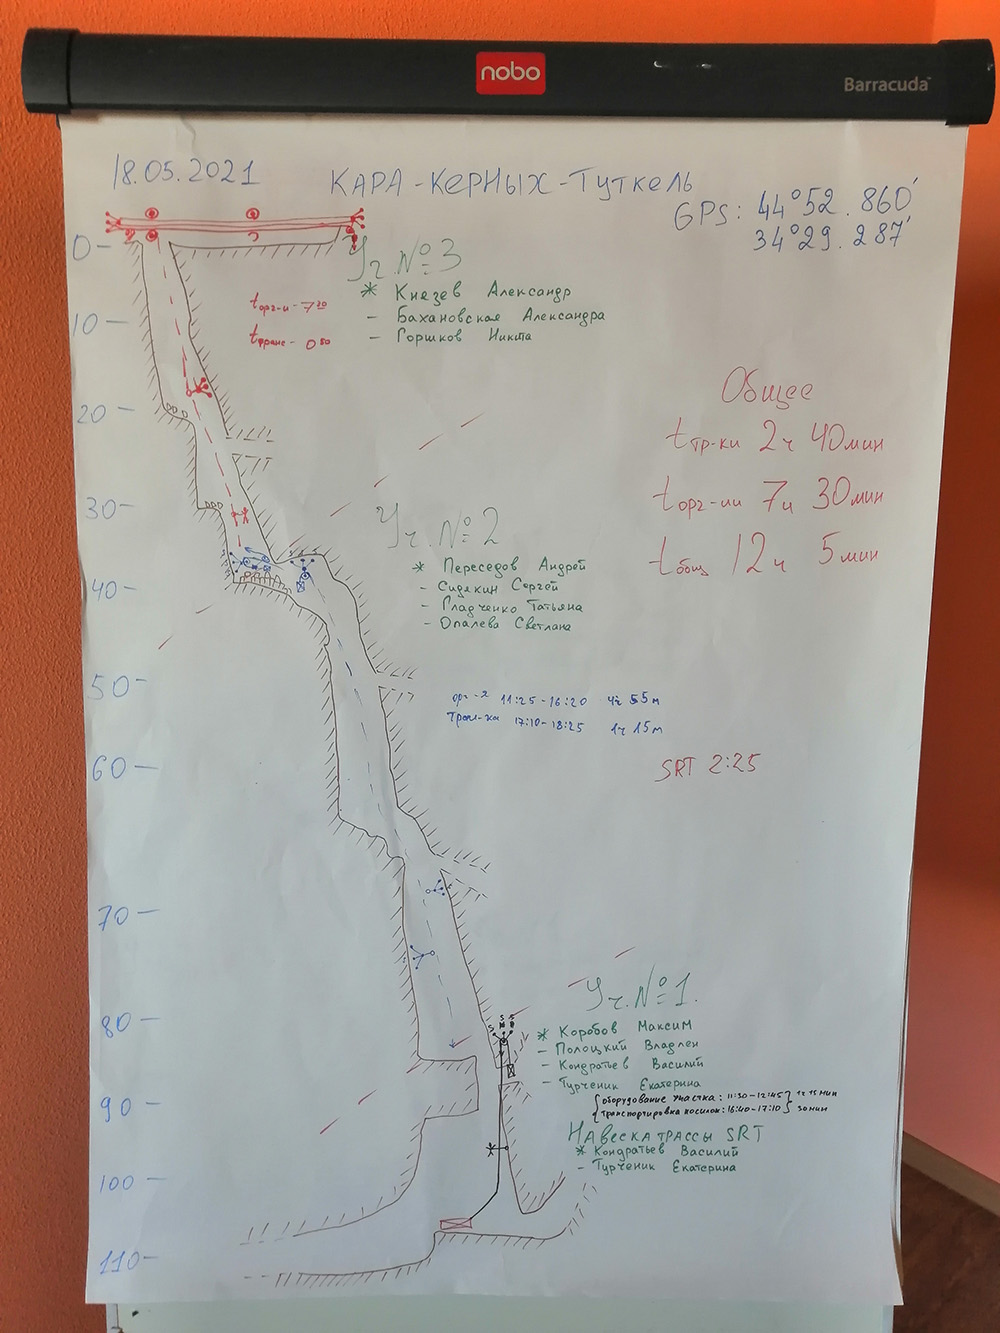 nobo
Barracuda
18.05.2021
КАРА-КЕРНЫХ-ТУТКЕЛЬ
GPS: 44°52.860'
34°29.287'
0
10
20
30
40
50
60
70
80
90
100
110
Уч. №3
* Князев Александр
- Бахановская Александра
- Горшков Никита
tорг-и - 7 30
tтранс - 0 50
Общее
tтр-ки 2ч 40мин
tорг-ии 7ч 30мин
tобщ 12ч 5мин
Уч. №2
* Переседов Андрей
- Сидякин Сергей
- Гладченко Татьяна
- Опалева Светлана
11:25-16:20 4ч 55м
17:10-18:25 1ч 15м
SRT 2:25
Уч. №1.
* Коробов Максим
- Полоцкий Владлен
- Кондратьев Василий
- Турченик Екатерина
оборудование участка: 11:30-12:45 1ч 15мин
транспортировка носилок: 16:40-17:10 30мин
НАВЕСКА ТРАССЫ SRT
* Кондратьев Василий
- Турченик Екатерина